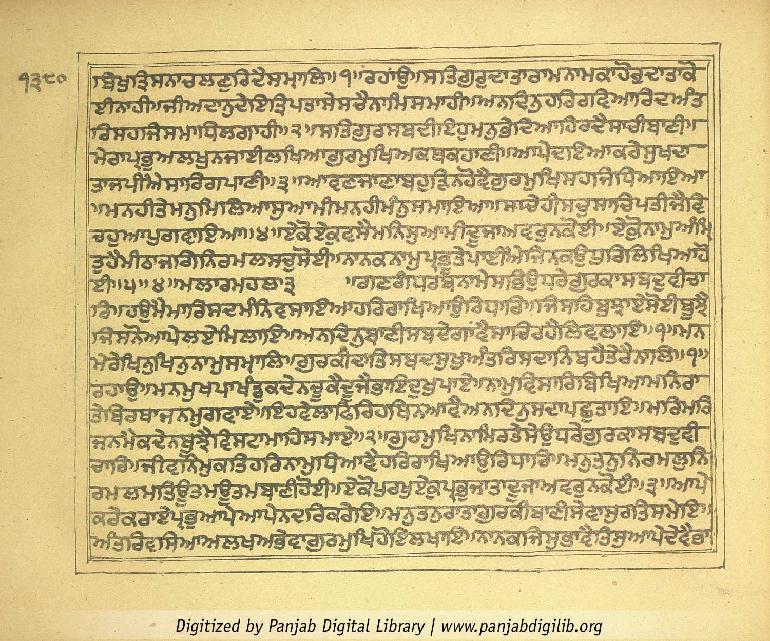 ੧੩੮੦
ਬਿਖੁਤ੍ਰਿਸਨਾਚਲਣੁਰਿਦੈਸਮਾਲਿ॥੧॥ਰਹਾਉ॥ਸਤਿਗੁਰੁਦਾਤਾਰਾਮਨਾਮਕਾਹੋਰੁਦਾਤਾਕੋ
ਈਨਾਹੀ॥ਜੀਅਦਾਨੁਦੇਇਤ੍ਰਿਪਤਾਸੇਸਚੈਨਾਮਿਸਮਾਹੀ॥ਅਨਦਿਨੁਹਰਿਰਵਿਆਰਿਦਅੰਤ
ਰਿਸਹਜਿਸਮਾਧਿਲਗਾਹੀ॥੨॥ਸਤਿਗੁਰਸਬਦੀਇਹੁਮਨੁਭੇਦਿਆਹਿਰਦੈਸਾਚੀਬਾਣੀ॥
ਮੇਰਾਪ੍ਰਭੁਅਲਖੁਨਜਾਈਲਖਿਆਗੁਰਮੁਖਿਅਕਥਕਹਾਣੀ॥ਆਪੇਦਇਆਕਰੇਸੁਖਦਾ
ਤਾਜਪੀਐਸਾਰਿੰਗਪਾਣੀ॥੩॥ਆਵਣਜਾਣਾਬਹੁੜਿਨਹੋਵੈਗੁਰਮੁਖਿਸਹਜਿਧਿਆਇਆ
॥ਮਨਹੀਤੇਮਨੁਮਿਲਿਆਸੁਆਮੀਮਨਹੀਮੰਨੁਸਮਾਇਆ॥ਸਾਚੇਹੀਸਚੁਸਾਚਿਪਤੀਜੈਵਿ
ਚਹੁਆਪੁਗਵਾਇਆ॥੪॥ਏਕੋਏਕੁਵਸੈਮਨਿਸੁਆਮੀਦੂਜਾਅਵਰੁਨਕੋਈ॥ਏਕੋਨਾਮੁਅੰਮ੍ਰਿ
ਤੁਹੈਮੀਠਾਜਗਿਨਿਰਮਲਸਚੁਸੋਈ॥ਨਾਨਕਨਾਮੁਪ੍ਰਭੂਤੇਪਾਈਐਜਿਨਕਉਧੁਰਿਲਿਖਿਆਹੋ
ਈ॥੫॥੪॥ਮਲਾਰਮਹਲਾ੩ ॥ਗਣਗੰਧਰਬਨਾਮੇਸਭਿਉਧਰੇਗੁਰਕਾਸਬਦੁਵੀਚਾ
ਰਿ॥ਹਉਮੈਮਾਰਿਸਦਮੰਨਿਵਸਾਇਆਹਰਿਰਾਖਿਆਉਰਿਧਾਰਿ॥ਜਿਸਹਿਬੁਝਾਏਸੋਈਬੂਝੈ
ਜਿਸਨੋਆਪੇਲਏਮਿਲਾਇ॥ਅਨਦਿਨੁਬਾਣੀਸਬਦੇਗਾਂਵੈਸਾਚਿਰਹੈਲਿਵਲਾਇ॥੧॥ਮਨ
ਮੇਰੇਖਿਨੁਖਿਨੁਨਾਮੁਸਮ੍ਹਾਲਿ॥ਗੁਰਕੀਦਾਤਿਸਬਦਸੁਖੁਅੰਤਰਿਸਦਾਨਿਬਹੈਤੇਰੈਨਾਲਿ॥੧॥
ਰਹਾਉ॥ਮਨਮੁਖਪਾਖੰਡੁਕਦੇਨਚੂਕੈਦੂਜੈਭਾਇਦੁਖੁਪਾਏ॥ਨਾਮੁਵਿਸਾਰਿਬਿਖਿਆਮਨਿਰਾ
ਤੇਬਿਰਥਾਜਨਮੁਗਵਾਏ॥ਇਹਵੇਲਾਫਿਰਿਹਥਿਨਆਵੈਅਨਦਿਨੁਸਦਾਪਛੁਤਾਏ॥ਮਰਿਮਰਿ
ਜਨਮੈਕਦੇਨਬੂਝੈਵਿਸਟਾਮਾਹਿਸਮਾਏ॥੨॥ਗੁਰਮੁਖਿਨਾਮਿਰਤੇਸੇਉਧਰੇਗੁਰਕਾਸਬਦੁਵੀ
ਚਾਰਿ॥ਜੀਵਨਮੁਕਤਿਹਰਿਨਾਮੁਧਿਆਵੈਹਰਿਰਾਖਿਆਉਰਿਧਾਰਿ॥ਮਨੁਤਨੁਨਿਰਮਲੁਨਿ
ਰਮਲਮਤਿਊਤਮਊਤਮਬਾਣੀਹੋਈ॥ਏਕੋਪੁਰਖੁਏਕੁਪ੍ਰਭੁਜਾਤਾਦੂਜਾਅਵਰੁਨਕੋਈ॥੩॥ਆਪੇ
ਕਰੇਕਰਾਏਪ੍ਰਭੁਆਪੇਆਪੇਨਦਰਿਕਰੇਇ॥ਮਨੁਤਨੁਰਾਤਾਗੁਰਕੀਬਾਣੀਸੇਵਾਸੁਰਤਿਸਮੇਇ॥
ਅੰਤਰਿਵਸਿਆਅਲਖਅਭੇਵਾਗੁਰਮੁਖਿਹੋਇਲਖਾਇ॥ਨਾਨਕਜਿਸੁਭਾਵੈਤਿਸੁਆਪੇਦੇਵੈਭਾ
Digitized by Panjab Digital Library | www.panjabdigilib.org